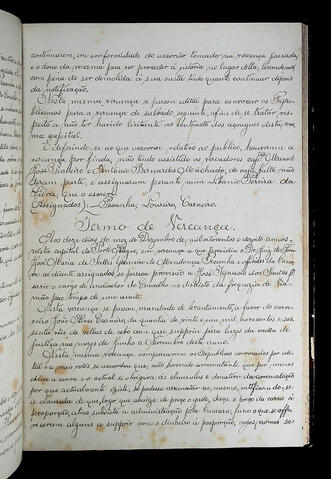 continuarem, em conformidade do accordo tomado, na vereança passada,
e o dono da mesma para ser proceder á vistoria no lugar della,
com pena de ser demolida á sua custa tudo quanto continuar depois
da notificação.
Nesta mesma vereança se passou edital para convocar os Repu-
blicanos para a vereança de sabbado seguinte, afim de se tratar, res-
peito a não ter havido licitante ao contracto dos açougues desta mes-
ma capital.
E defirindo-se ao que occorreu relativo ao publico, houveram a
vereança por finda, não tendo assistido os vereadores Manoel
José Pinheiro e Antonio Bernardes Machado, de cuja falta não
deram parte, e assignaram perante mim Libanio Pereira da
que o escrevi.
(Assignados):— Peçanha, Loureiro, Carneiro.
Termo de Vereança.
Aos doze dias do mez de Dezembro de mil oitocentos e dezoito annos,
nesta capital de Porto Alegre, em vereança que presidio o Dr. Juiz de Fóra
José Maria de Salles Gameiro de Mendonça Peçanha e officiaes da Cama-
ra ao diante assignados se passou provisão a José Ignacio dos Santos
servir o cargo de avaliador do Conselho no districto da freguezia de Via-
mão por tempo de um anno.
Nesta vereança se passou mandado de levantamento a favor do carce-
reiro João Alves Carneiro da quantia de vinte e um mil, novecentos e ses-
senta réis de vellas de sebo com que supprio para luzes da cadêa de
justiça, nos mezes de Junho a Novembro deste anno.
Nesta mesma vereança compareceram os Republicos convocados por edi-
tal e a mais votos se accordou que, não havendo arrematante que por me-
nos désse a carne e o actual se obrigava ás clausulas e donativo da arrematação
por que actualmente está, só podesse arrematar ao mesmo, notificando-se
a Camara de que, logo que abaixe de preço o gado, desça o preço da carne á
proporção, aliás suscita a administração pela Camara; para o que se offe-
receram alguns a supprir com o dinheiro á proporção, cujos nomes se